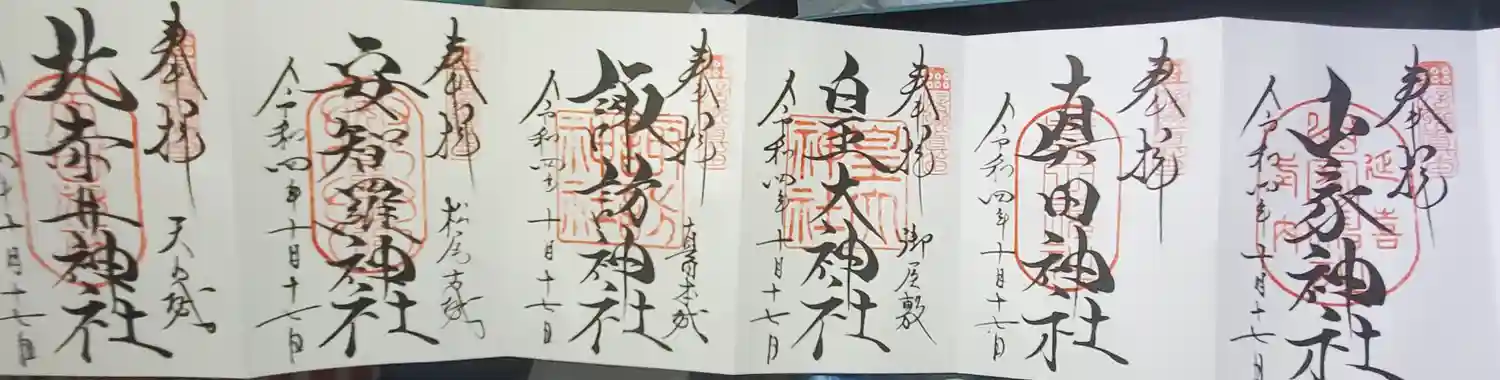 奉拝
延喜式内
山家神社
令和四年十月十七日
奉拝
真田神社
令和四年十月十七日
奉拝
御屋敷
皇大神社
令和四年十月十七日
奉拝
真田本城
諏訪神社
令和四年十月十七日
奉拝
松尾古城
安智羅神社
令和四年十月十七日
奉拝
天白城
北赤井神社
令和四年十月十七日